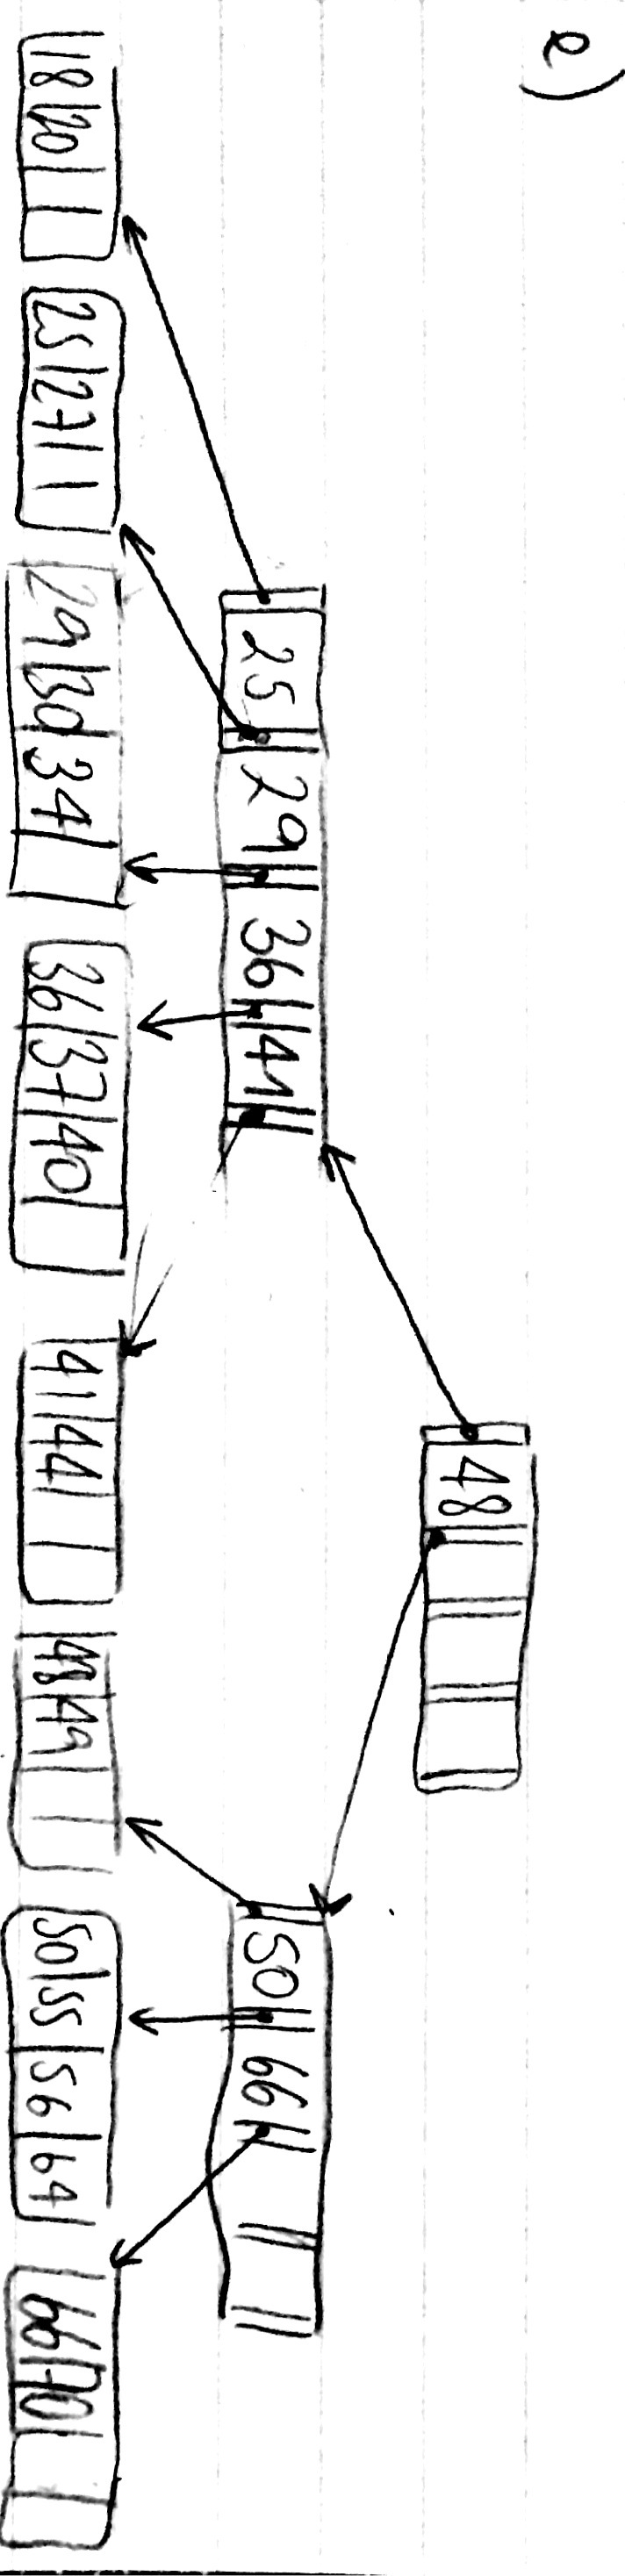 e)
48
25 29 36 41
50 66
18 20
25 27
29 30 34
36 37 40
41 44
48 49
50 55 56 64
66 70